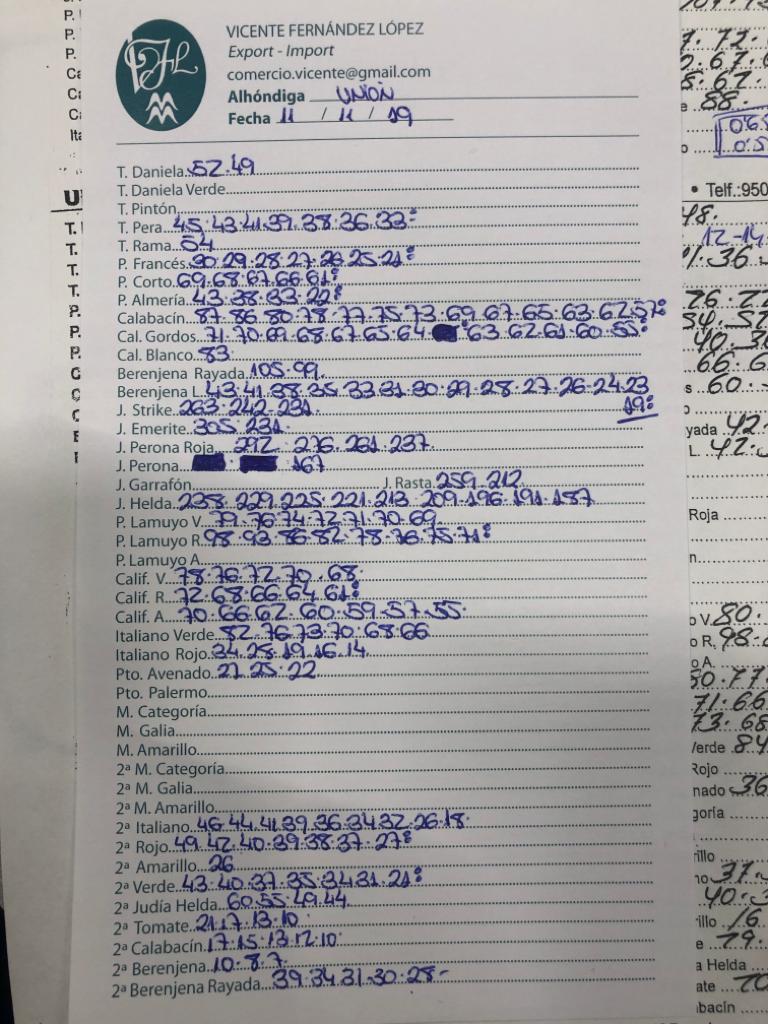 VICENTE FERNÁNDEZ LÓPEZ
Export - Import
comercio.vicente@gmail.com
Alhóndiga UNIÓN
Fecha 11 / 11 / 19
T. Daniela 52.49
T. Daniela Verde
T. Pintón
T. Pera 45.43.41.39.38.36.33:
T. Rama 54
P. Francés 30.29.28.27.26.25.21:
P. Corto 69.68.67.66.61:
P. Almería 43.38.33.22:
Calabacín 87.86.80.78.77.75.73.69.67.65.63.62.57:
Cal. Gordos 71.70.69.68.67.65.64 63.62.61.60.55:
Cal. Blanco 83
Berenjena Rayada 105.99
Berenjena L. 43.41.38.35.33.31.30.29.28.27.26.24.23
19:
J. Strike 263.242.231
J. Emerite 305.231
J. Perona Roja 292.276.261.237
J. Perona 167
J. Garrafón J. Rasta 259.212
J. Helda 238.229.225.221.213.209.196.191.187
P. Lamuyo V. 79.76.74.72.71.70.69
P. Lamuyo R. 98.93.86.82.78.76.75.71:
P. Lamuyo A.
Calif. V. 78.76.72.70.68
Calif. R. 72.68.66.64.61:
Calif. A. 70.66.62.60.59.57.55
Italiano Verde 82.76.73.70.68.66
Italiano Rojo 34.28.19.16.14
Pto. Avenado 27.25.22
Pto. Palermo
M. Categoría
M. Galia
M. Amarillo
2ª M. Categoría
2ª M. Galia
2ª M. Amarillo
2ª Italiano 46.44.41.39.36.34.32.26.18
2ª Rojo 49.42.40.39.38.37.27:
2ª Amarillo 26
2ª Verde 43.40.37.35.34.31.21:
2ª Judía Helda 60.55.49.44
2ª Tomate 21.17.13.10
2ª Calabacín 17.15.13.12.10
2ª Berenjena 10.8.7
2ª Berenjena Rayada 39.34.31.30.28-